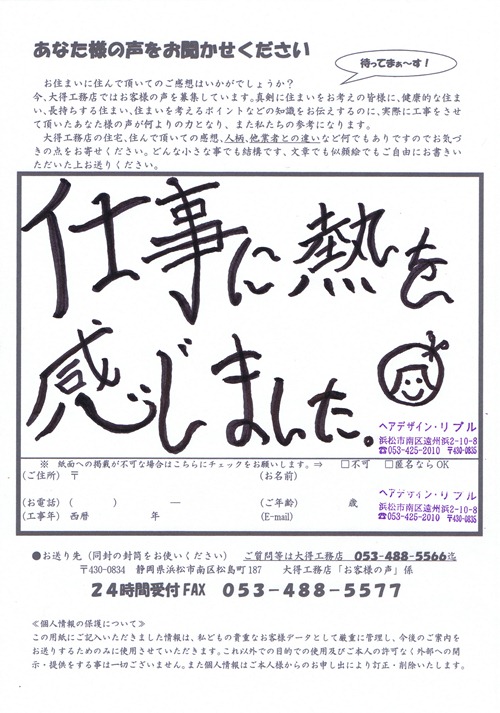 あなた様の声をお聞かせください
待ってまぁ～す！
お住まいに住んで頂いてのご感想はいかがでしょうか？
今、大得工務店ではお客様の声を募集しています。真剣に住まいをお考えの皆様に、健康的な住ま
い、長持ちする住まい、住まいを考えるポイントなどの知識をお伝えするのに、実際に工事をさせ
て頂いたあなた様の声が何よりの力となり、また私たちの参考になります。
大得工務店の住宅、住んで頂いての感想、人柄、他業者との違いなど何でもありですのでお気づ
きの点をお寄せください。どんな小さな事でも結構です、文章でも似顔絵でもご自由にお書きい
ただいた上お送りください。
仕事に熱を
感じました。
ヘアデザイン・リプル
浜松市南区遠州浜2-10-8
☎053-425-2010 〒430-0835
※ 紙面への掲載が不可な場合はこちらにチェックをお願いします。⇒ □不可 □匿名ならOK
(ご住所) 〒 (お名前)
(お電話) ( ) ― (ご年齢) 歳
(工事年) 西暦 年 (E-mail)
ヘアデザイン・リプル
浜松市南区遠州浜2-10-8
☎053-425-2010 〒430-0835
●お送り先（同封の封筒をお使いください） ご質問等は大得工務店 053-488-5566迄
〒430-0834 静岡県浜松市南区松島町187 大得工務店「お客様の声」係
24時間受付FAX 053-488-5577
≪個人情報の保護について≫
この用紙にご記入いただきました情報は、私どもの貴重なお客様データとして厳重に管理し、今後のご案内を
お送りするためのみに使用させていただきます。これ以外での目的での使用及びご本人の許可なく外部への開
示・提供をする事は一切ございません。また個人情報はご本人様からのお申し出により訂正・削除いたします。